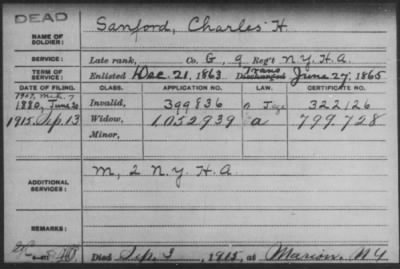 DEAD
NAME OF SOLDIER: Sanford, Charles H.
SERVICE: Late rank, Co. G, 9 Reg't N.Y.H.A.
TERM OF SERVICE: Enlisted Dec. 21, 1863 Trans Discharged June 27, 1865
DATE OF FILING. CLASS. APPLICATION NO. LAW. CERTIFICATE NO.
1907, Mch. 7
1880, June 30 Invalid, 399836 322126
1915 Sep. 13 Widow, 1,052,939 a 799,728
Minor,
ADDITIONAL SERVICES: M, 2 N.Y. H.A.
REMARKS:
Died Sep. 3, 1915, at Marion, N.Y.